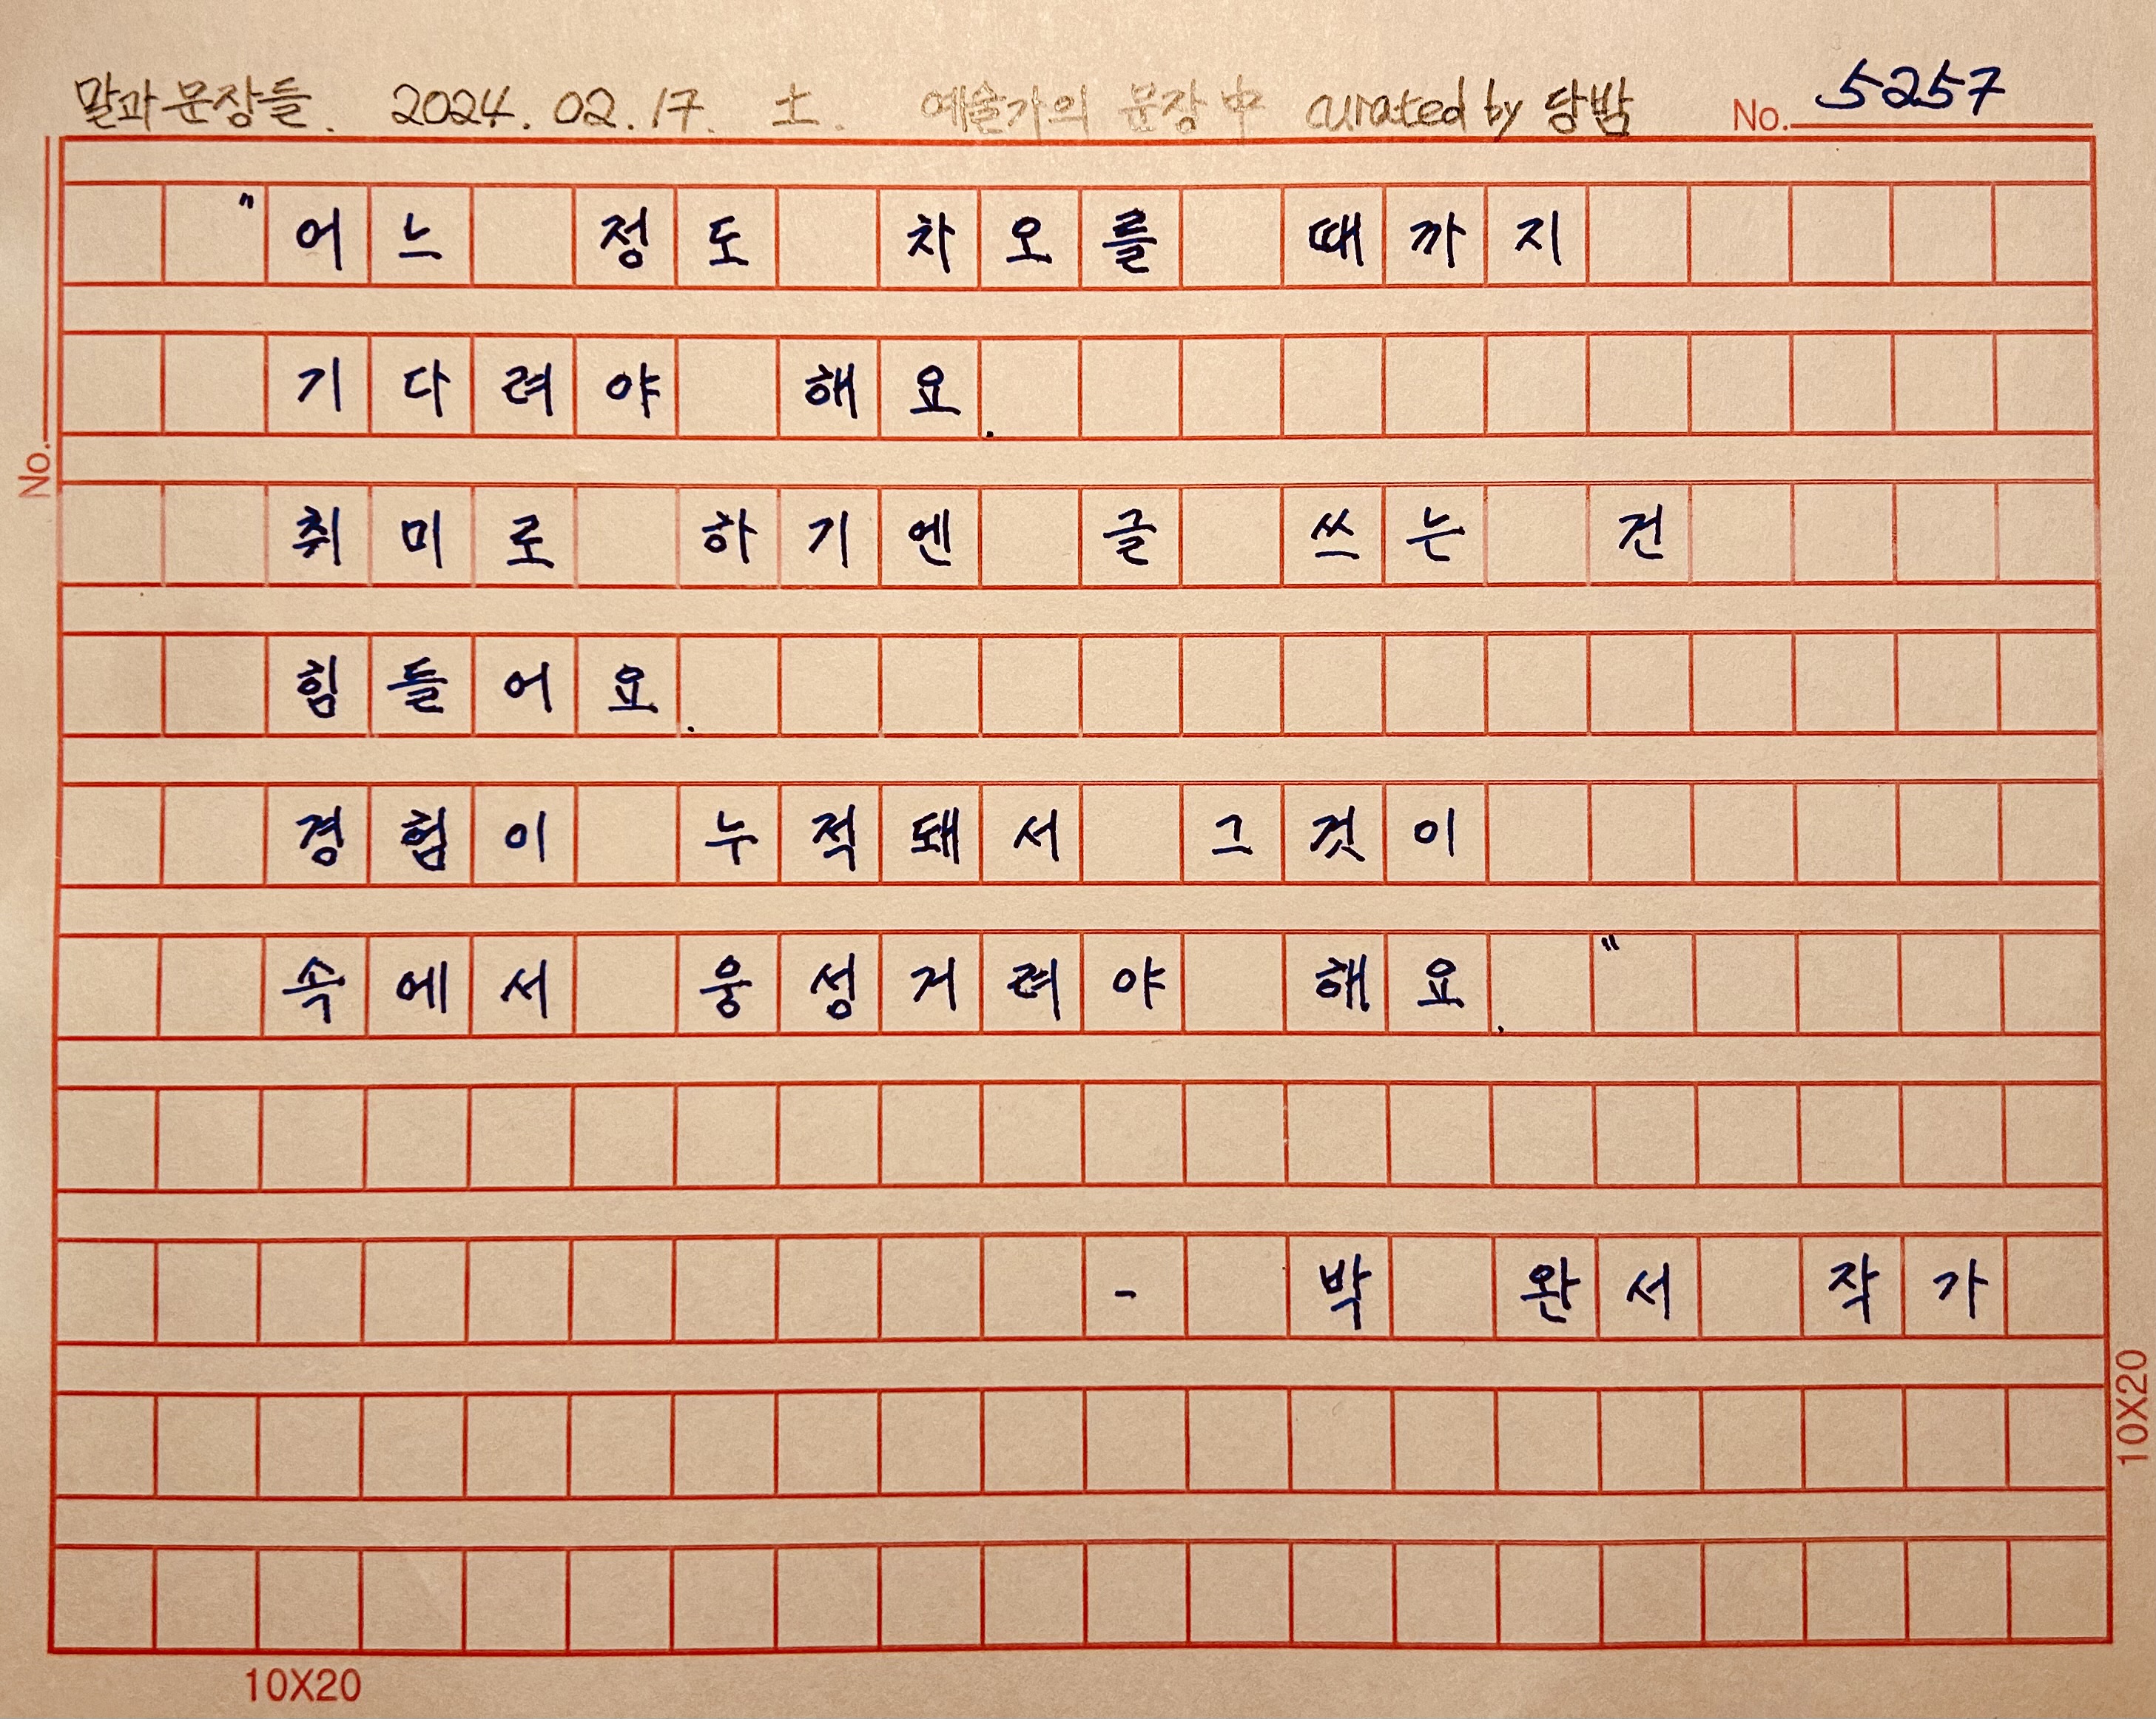 말과 문장들. 2024. 02. 17. 土. 예술가의 문장 中 curated by 당밤 No. 5257
"어느 정도 차오를 때까지
기다려야 해요.
No.
취미로 하기엔 글 쓰는 건
힘들어요.
경험이 누적돼서 그것이
속에서 웅성거려야 해요."
- 박 완서 작가
10X20
10X20